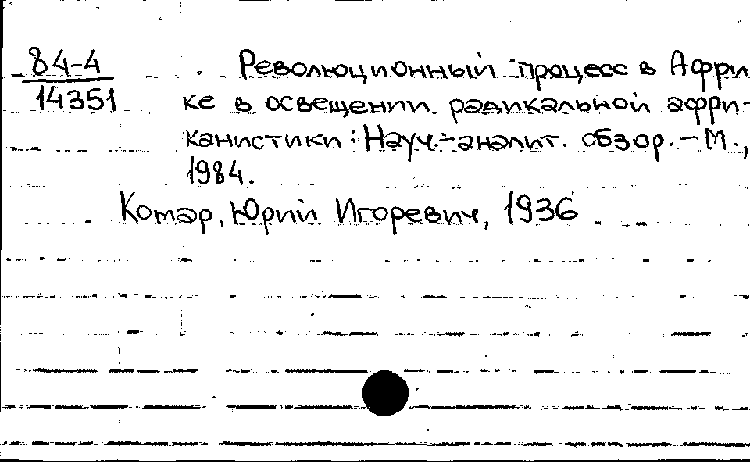 84-4
14351
Революционный процесс в Афри
ке в освещении радикальной афри-
канистики: Науч.-аналит. обзор. - М.,
1984.
Комар, Юрий Игоревич, 1936